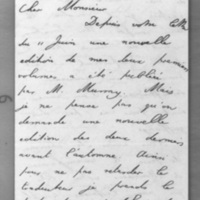 Cher Monsieur
Depuis votre lettre
du Juin une nouvelle
edition de mes deux premiers
volumes a été publiée
par M. Murray. Mais
je ne pense pas qu'on
demande une nouvelle
edition des deux derniers
avant l'automne. Ainsi
pour ne pas retarder la
traduction je prends la